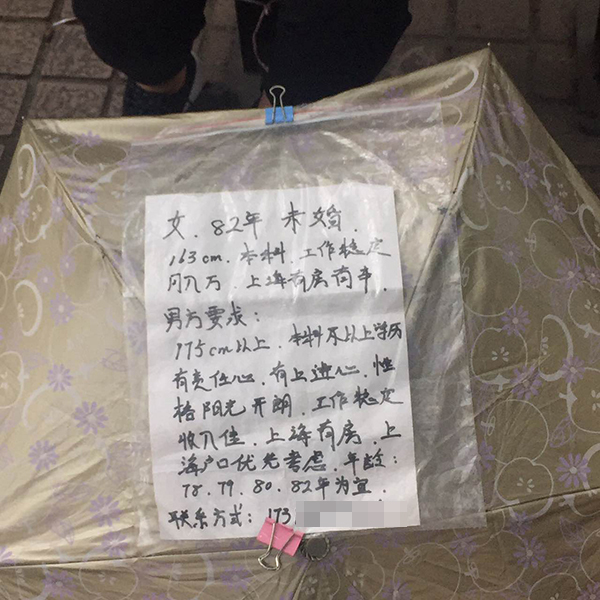 女.82年 未婚.
163cm.本科.工作稳定
月入万.上海有房有车.
男方要求:
175cm以上.本科及以上学历
有责任心.有上进心.性
格阳光开朗.工作稳定
收入佳.上海有房.上
海户口优先考虑.年龄:
78.79.80.82年为宜.
联系方式:173